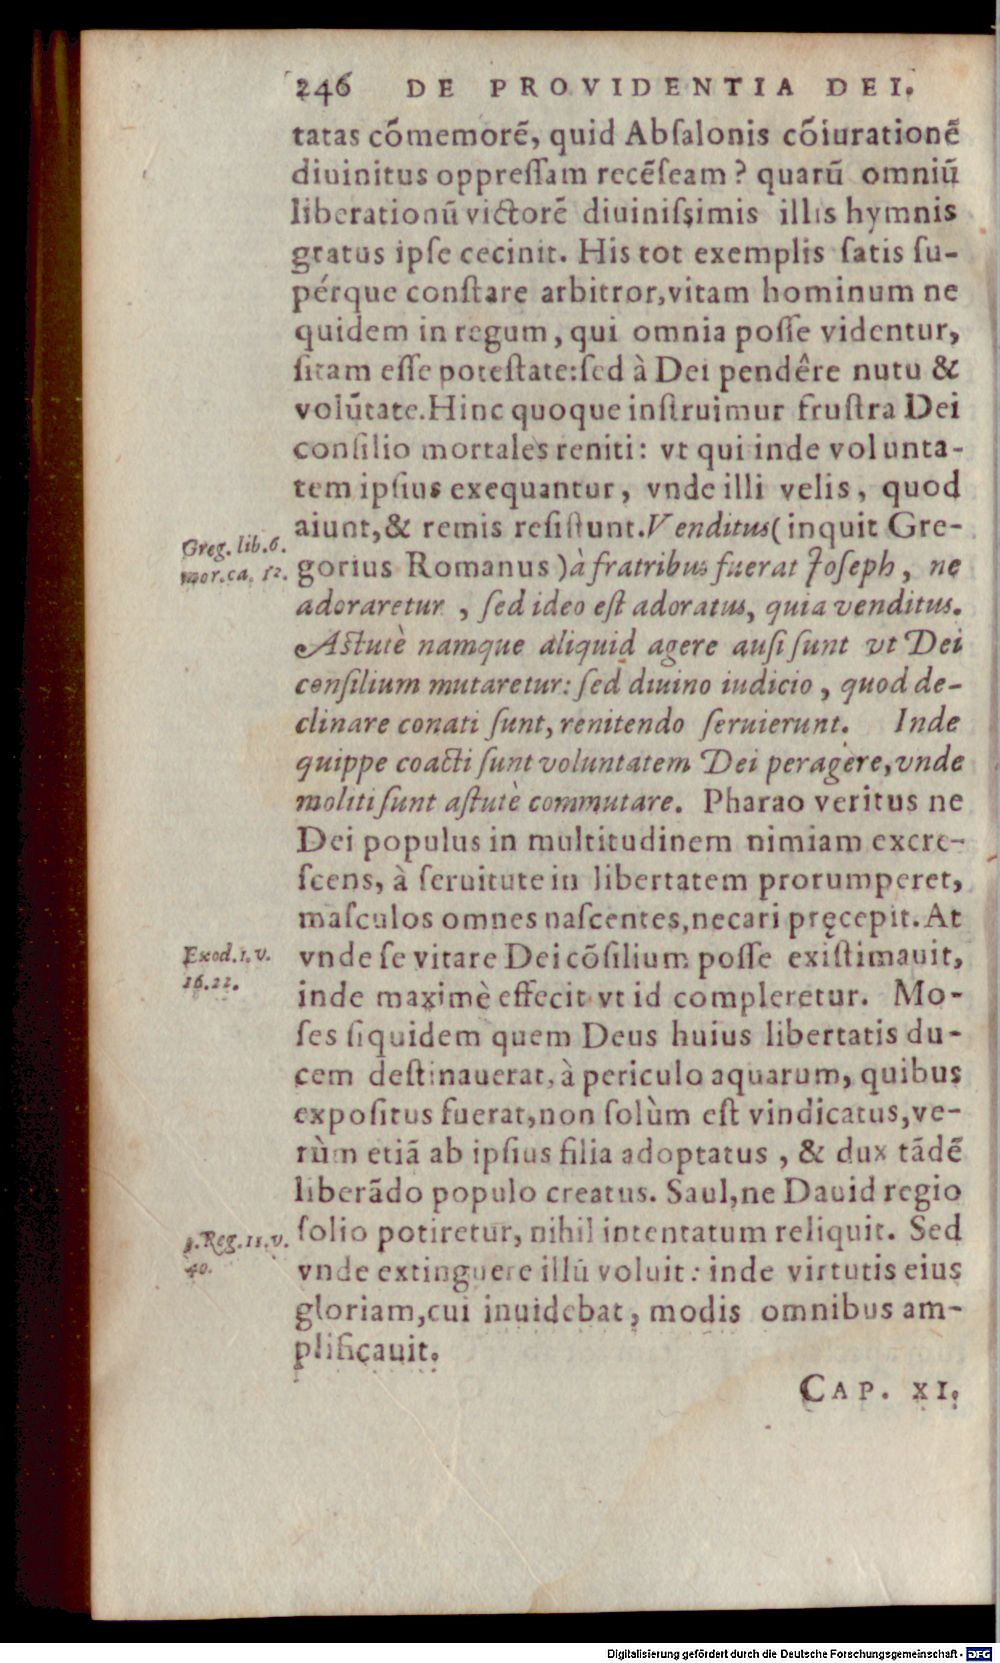 246 DE PROVIDENTIA DEI.
tatas cõmemorẽ, quid Abſalonis cõiurationẽ
diuinitus oppreſſam recẽſeam? quarũ omniũ
liberationũ victorẽ diuiniſsimis illis hymnis
gratus ipſe cecinit. His tot exemplis ſatis ſu-
pérque conſtare arbitror, vitam hominum ne
quidem in regum, qui omnia poſſe videntur,
ſitam eſſe poteſtate: ſed à Dei pendêre nutu &
volũtate. Hinc quoque inſtruimur fruſtra Dei
conſilio mortales reniti: vt qui inde volunta-
tem ipſius exequantur, vnde illi velis, quod
aiunt, & remis reſiſtunt. Venditus (inquit Gre-
Greg. lib. 6.
mor. ca. 12.
gorius Romanus) à fratribus fuerat Joſeph, ne
adoraretur, ſed ideo eſt adoratus, quia venditus.
Aſtutè namque aliquid agere auſi ſunt vt Dei
conſilium mutaretur: ſed diuino iudicio, quod de-
clinare conati ſunt, renitendo ſeruierunt. Inde
quippe coacti ſunt voluntatem Dei peragere, vnde
moliti ſunt aſtutè commutare. Pharao veritus ne
Dei populus in multitudinem nimiam excre-
ſcens, à ſeruitute in libertatem prorumperet,
maſculos omnes naſcentes, necari pręcepit. At
Exod. 1. v.
16. 22.
vnde ſe vitare Dei cõſilium poſſe exiſtimauit,
inde maximè effecit vt id compleretur. Mo-
ſes ſiquidem quem Deus huius libertatis du-
cem deſtinauerat, à periculo aquarum, quibus
expoſitus fuerat, non ſolùm eſt vindicatus, ve-
rùm etiã ab ipſius filia adoptatus, & dux tãdẽ
liberãdo populo creatus. Saul, ne Dauid regio
ſolio potiretur, nihil intentatum reliquit. Sed
Reg. 11. v.
40.
vnde extinguere illũ voluit: inde virtutis eius
gloriam, cui inuidebat, modis omnibus am-
plificauit.
CAP. XI.
Digitalisierung gefördert durch die Deutsche Forschungsgemeinschaft - DFG